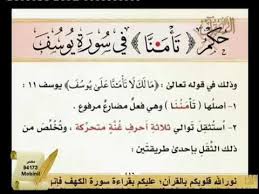 حكم (تأمنّا) في سورة يوسف
وذلك في قوله تعالى: (مَا لَكَ لَا تَأْمَنَّا عَلَى يُوسُفَ) يوسف ١١ :
١- أصلها (تَأْمَنُنَا) وهي فعل مضارع مرفوع .
٢- استُثقِل توالي ثلاثة أحرف غُنّة متحرّكة ، وتُخُلِّص من
ذلك الثِّقَل بإحدى طريقتين :
94173
Mobinil
نور الله قلوبكم بالقرآن؛ عليكم بقراءة سورة الكهف